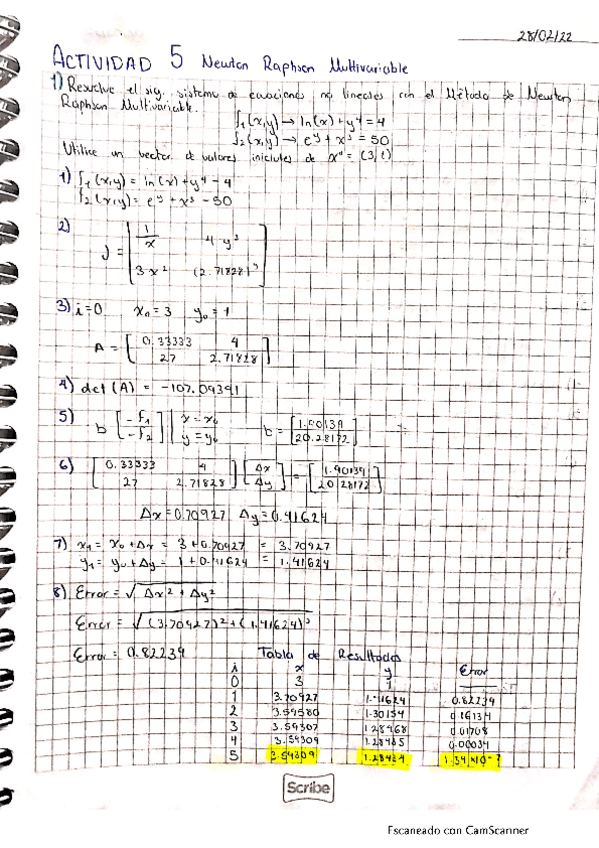 28/02/22
ACTIVIDAD 5 Newton Raphson Multivariable
1) Resuelve el sig. sistema de ecuaciones no lineales con el Método de Newton
Raphson Multivariable.
f₁(x,y) → ln(x) + y⁴ = 4
f₂(x,y) → e^y + x³ = 50
Utilice un vector de valores iniciales de x⁰ = (3,1)
1) f₁(x,y) = ln(x) + y⁴ - 4
f₂(x,y) = e^y + x³ - 50
2) J = [ 1/x 4y³
3x² (2.71828)^y ]
3) i=0 x₀ = 3 y₀ = 1
A = [ 0.33333 4
27 2.71828 ]
4) det(A) = -107.09391
5) b [ -f₁ / -f₂ ] | x = x₀ / y = y₀ b = [ 1.90139 / 20.28172 ]
6) [ 0.33333 4 / 27 2.71828 ] [ Δx / Δy ] = [ 1.90139 / 20.28172 ]
Δx = 0.70927 Δy = 0.41624
7) x₁ = x₀ + Δx = 3 + 0.70927 = 3.70927
y₁ = y₀ + Δy = 1 + 0.41624 = 1.41624
8) Error = √Δx² + Δy²
Error = √(3.70927)² + (1.41624)²
Error = 0.82239
Tabla de Resultados
i x y Error
0 3 1
1 3.70927 1.41624 0.82239
2 3.59580 1.30154 0.16134
3 3.59307 1.28468 0.01708
4 3.59309 1.28435 0.00034
5 3.59309
Scribe
Escaneado con CamScanner